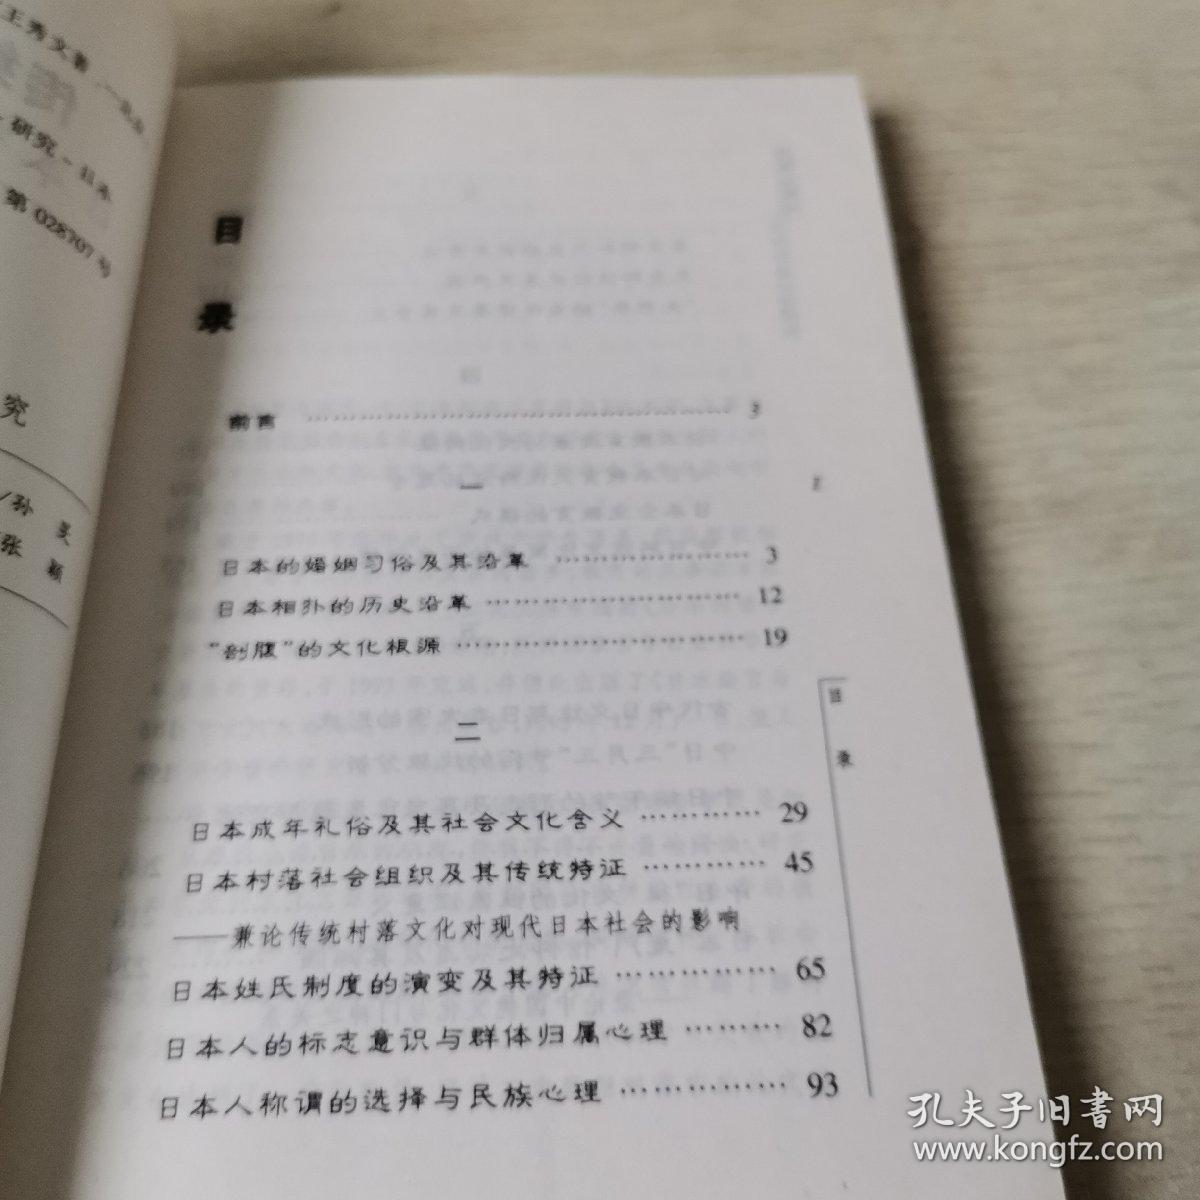 王秀文著
研究-日本
第 028707 号
究
/孙 旻
张 颖
目
录
前言 …………………………………… 3
一
日本的婚姻习俗及其沿革 ……………… 3
日本相扑的历史沿革 …………………… 12
“剖腹”的文化根源 …………………… 19
二
日本成年礼俗及其社会文化含义 ………… 29
日本村落社会组织及其传统特征 ………… 45
——兼论传统村落文化对现代日本社会的影响
日本姓氏制度的演变及其特征 …………… 65
日本人的标志意识与群体归属心理 ……… 82
日本人称谓的选择与民族心理 …………… 93
1
目
录
孔夫子旧书网
www.kongfz.com